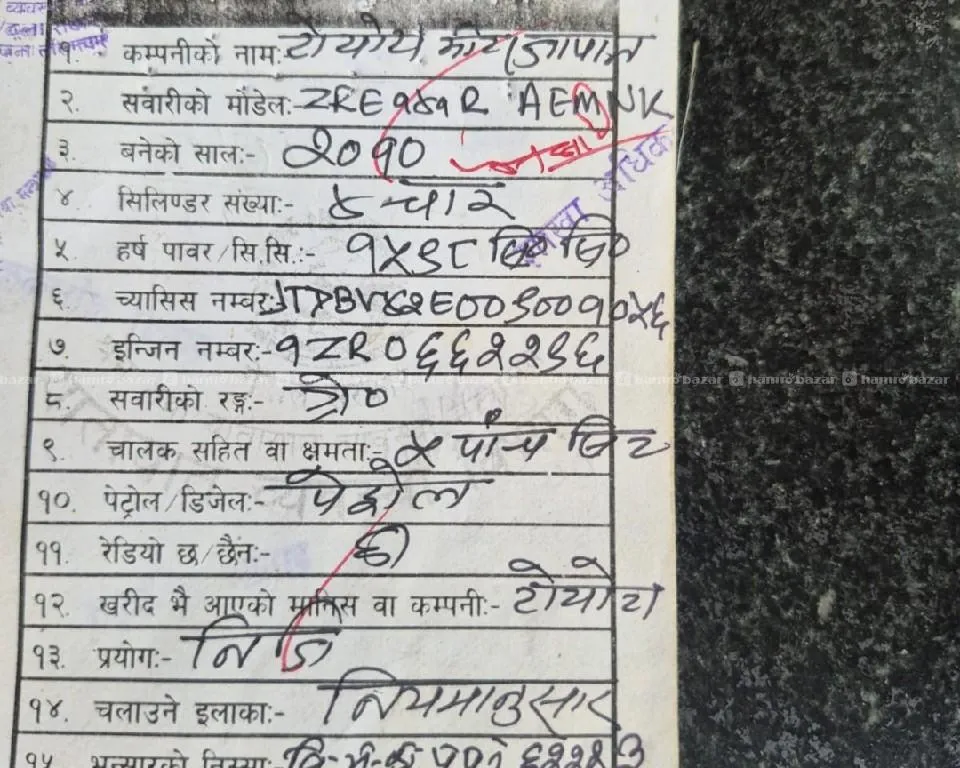 १. कम्पनीको नामः टोयोटा मोटर जापान
२. सवारीको मौडेलः- ZRE१४१R AEMNK
३. बनेको सालः- २०१०
४ सिलिण्डर संख्याः- ४ चार
५ हर्ष पावर/सि.सि.:- १५९८ सि० सि०
६ च्यासिस नम्बरः JTDBV४२E००९००१०५६
७. इन्जिन नम्बरः- १ZR०६६२२९६
hamrobazar hamrobazar hamrobazar
८. सवारीको रङ्गः- ग्रे०
९. चालक सहित वा क्षमताः- ५ पांच सिट
१०. पेट्रोल/डिजेलः- पेट्रोल
११. रेडियो छ/छैनः- छ
१२. खरीद भै आएको मानिस वा कम्पनीः- टोयोटा
१३. प्रयोगः- निजि
१४. चलाउने इलाकाः- नियमानुसार